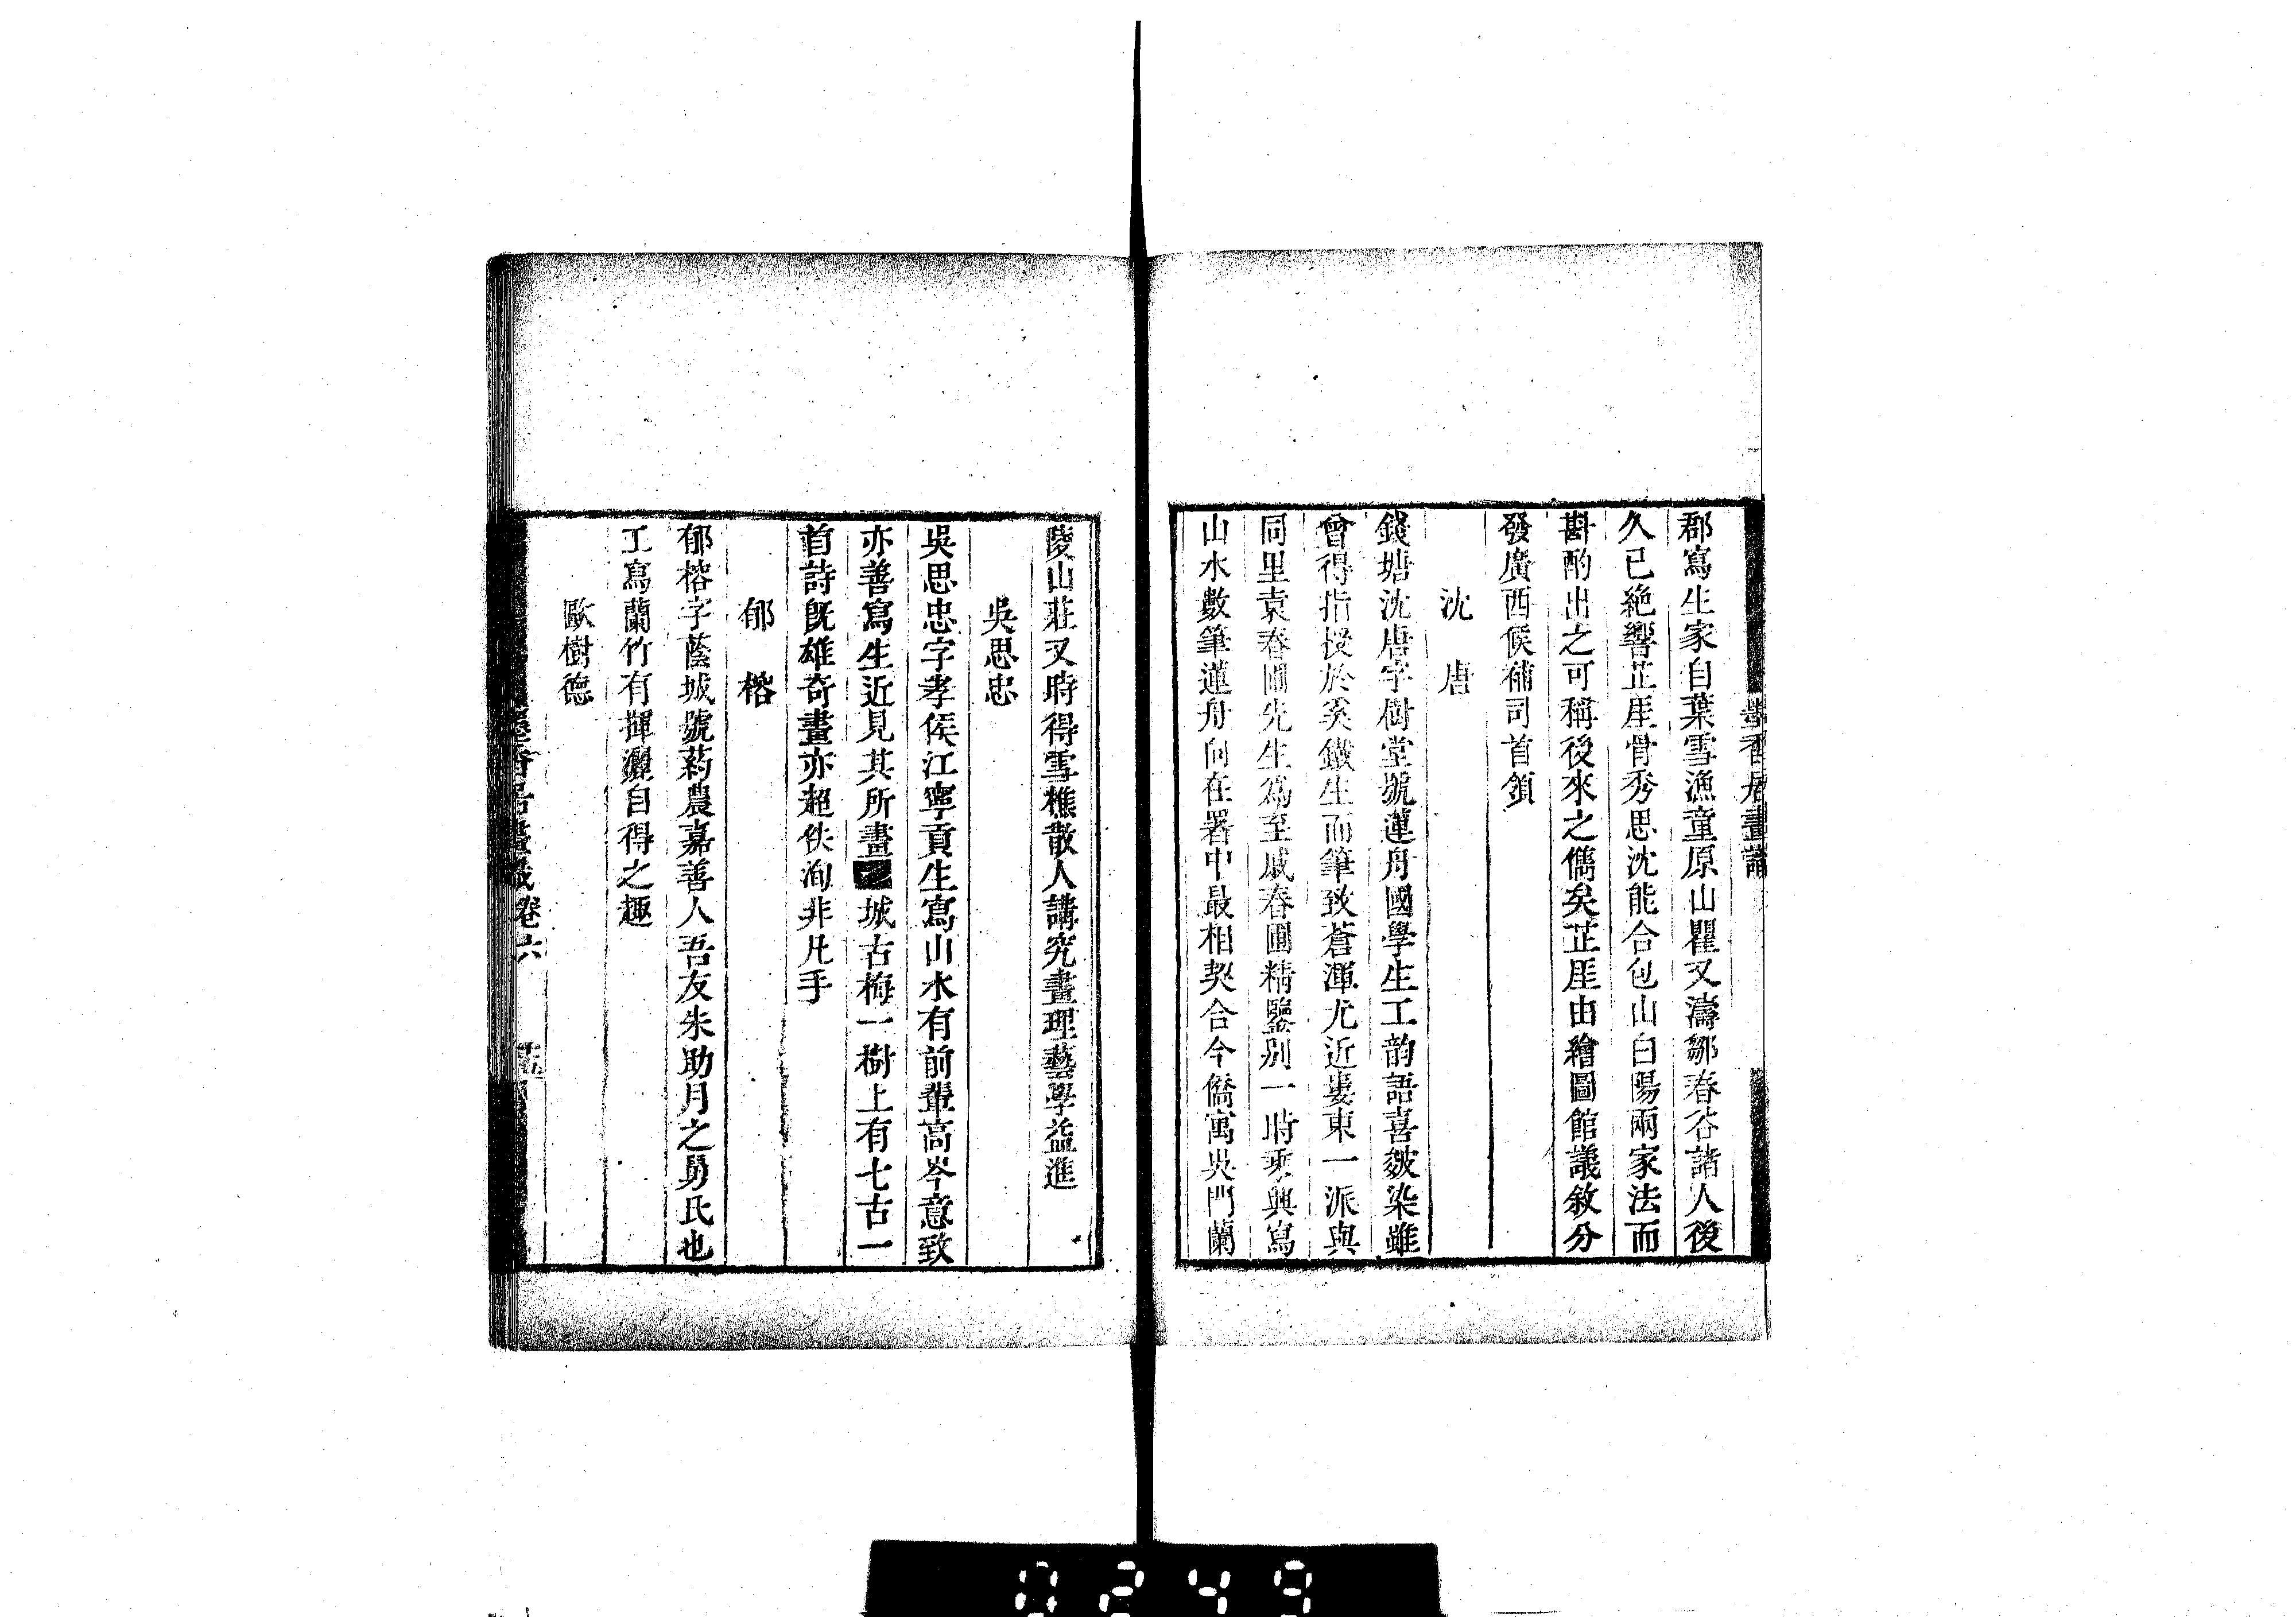 郡寫生家自葉雪漁童原山瞿又濤鄒春谷諸人後
久已絶響芷厓骨秀思沈能合包山白陽兩家法而
斟酌出之可稱後來之儁矣芷厓由繪圖館議敘分
發廣西候補司首領
沈唐
錢塘沈唐字樹堂號蓮舟國學生工韵語喜皴染雖
曾得指授於奚鐵生而筆致蒼渾尤近婁東一派與
同里袁春圃先生爲至戚春圃精鑒别一時乘興寫
山水數筆蓮舟向在署中最相契合今僑寓吳門蘭
陵山莊又時得雪樵散人講究畫理藝學益進
吳思忠
吳思忠字孝侯江寧貢生寫山水有前輩高岑意致
亦善寫生近見其所畫城古梅一樹上有七古一
首詩旣雄奇畫亦超佚洵非凡手
郁榕
郁榕字蔭城號葯農嘉善人吾友朱助月之舅氏也
工寫蘭竹有揮灑自得之趣
歐樹德
墨香居畫識卷六
0249